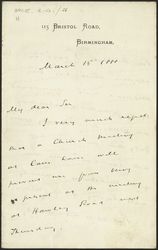 115 BRISTOL ROAD,
BIRMINGHAM.
March 15th
My dear Sir
I very much regret
that a Church Meeting
at Carrs Lane will
prevent me from being
present at the meeting
at Hawley Road next
Thursday.